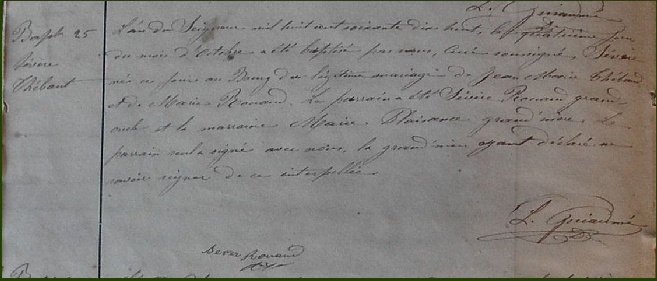 L. Guiaumé
Bapt. 25
Sévère
Thébaut
L'an du Seigneur mil huit cent soixante dix huit, le quatorzième jour
du mois d'Octobre a été baptisé par nous, Curé soussigné, Sévère
né ce jour au Bourg du légitime mariage de Jean Marie Thébau
et de Marie Rouaud. Le parrain a été Sévère Rouaud grand
oncle et la marraine Marie Plaisance grand'mère. Le
parrain seul a signé avec nous, la grand'mère ayant déclaré ne
savoir signer de ce interpellée.
L. Guiaumé
Sever Rouaud